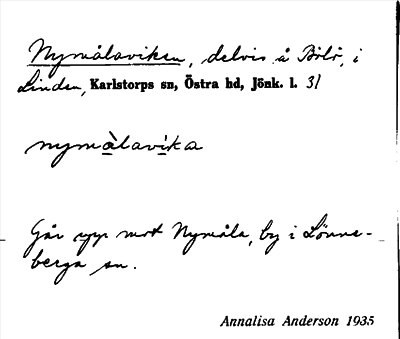 Nymålaviken, delvis å Bölö, i
Linden, Karlstorps sn, Östra hd, Jönk. l. 31
nymàlavika
Går upp mot Nymåla, by i Lönne-
berga sn.
Annalisa Anderson 1935